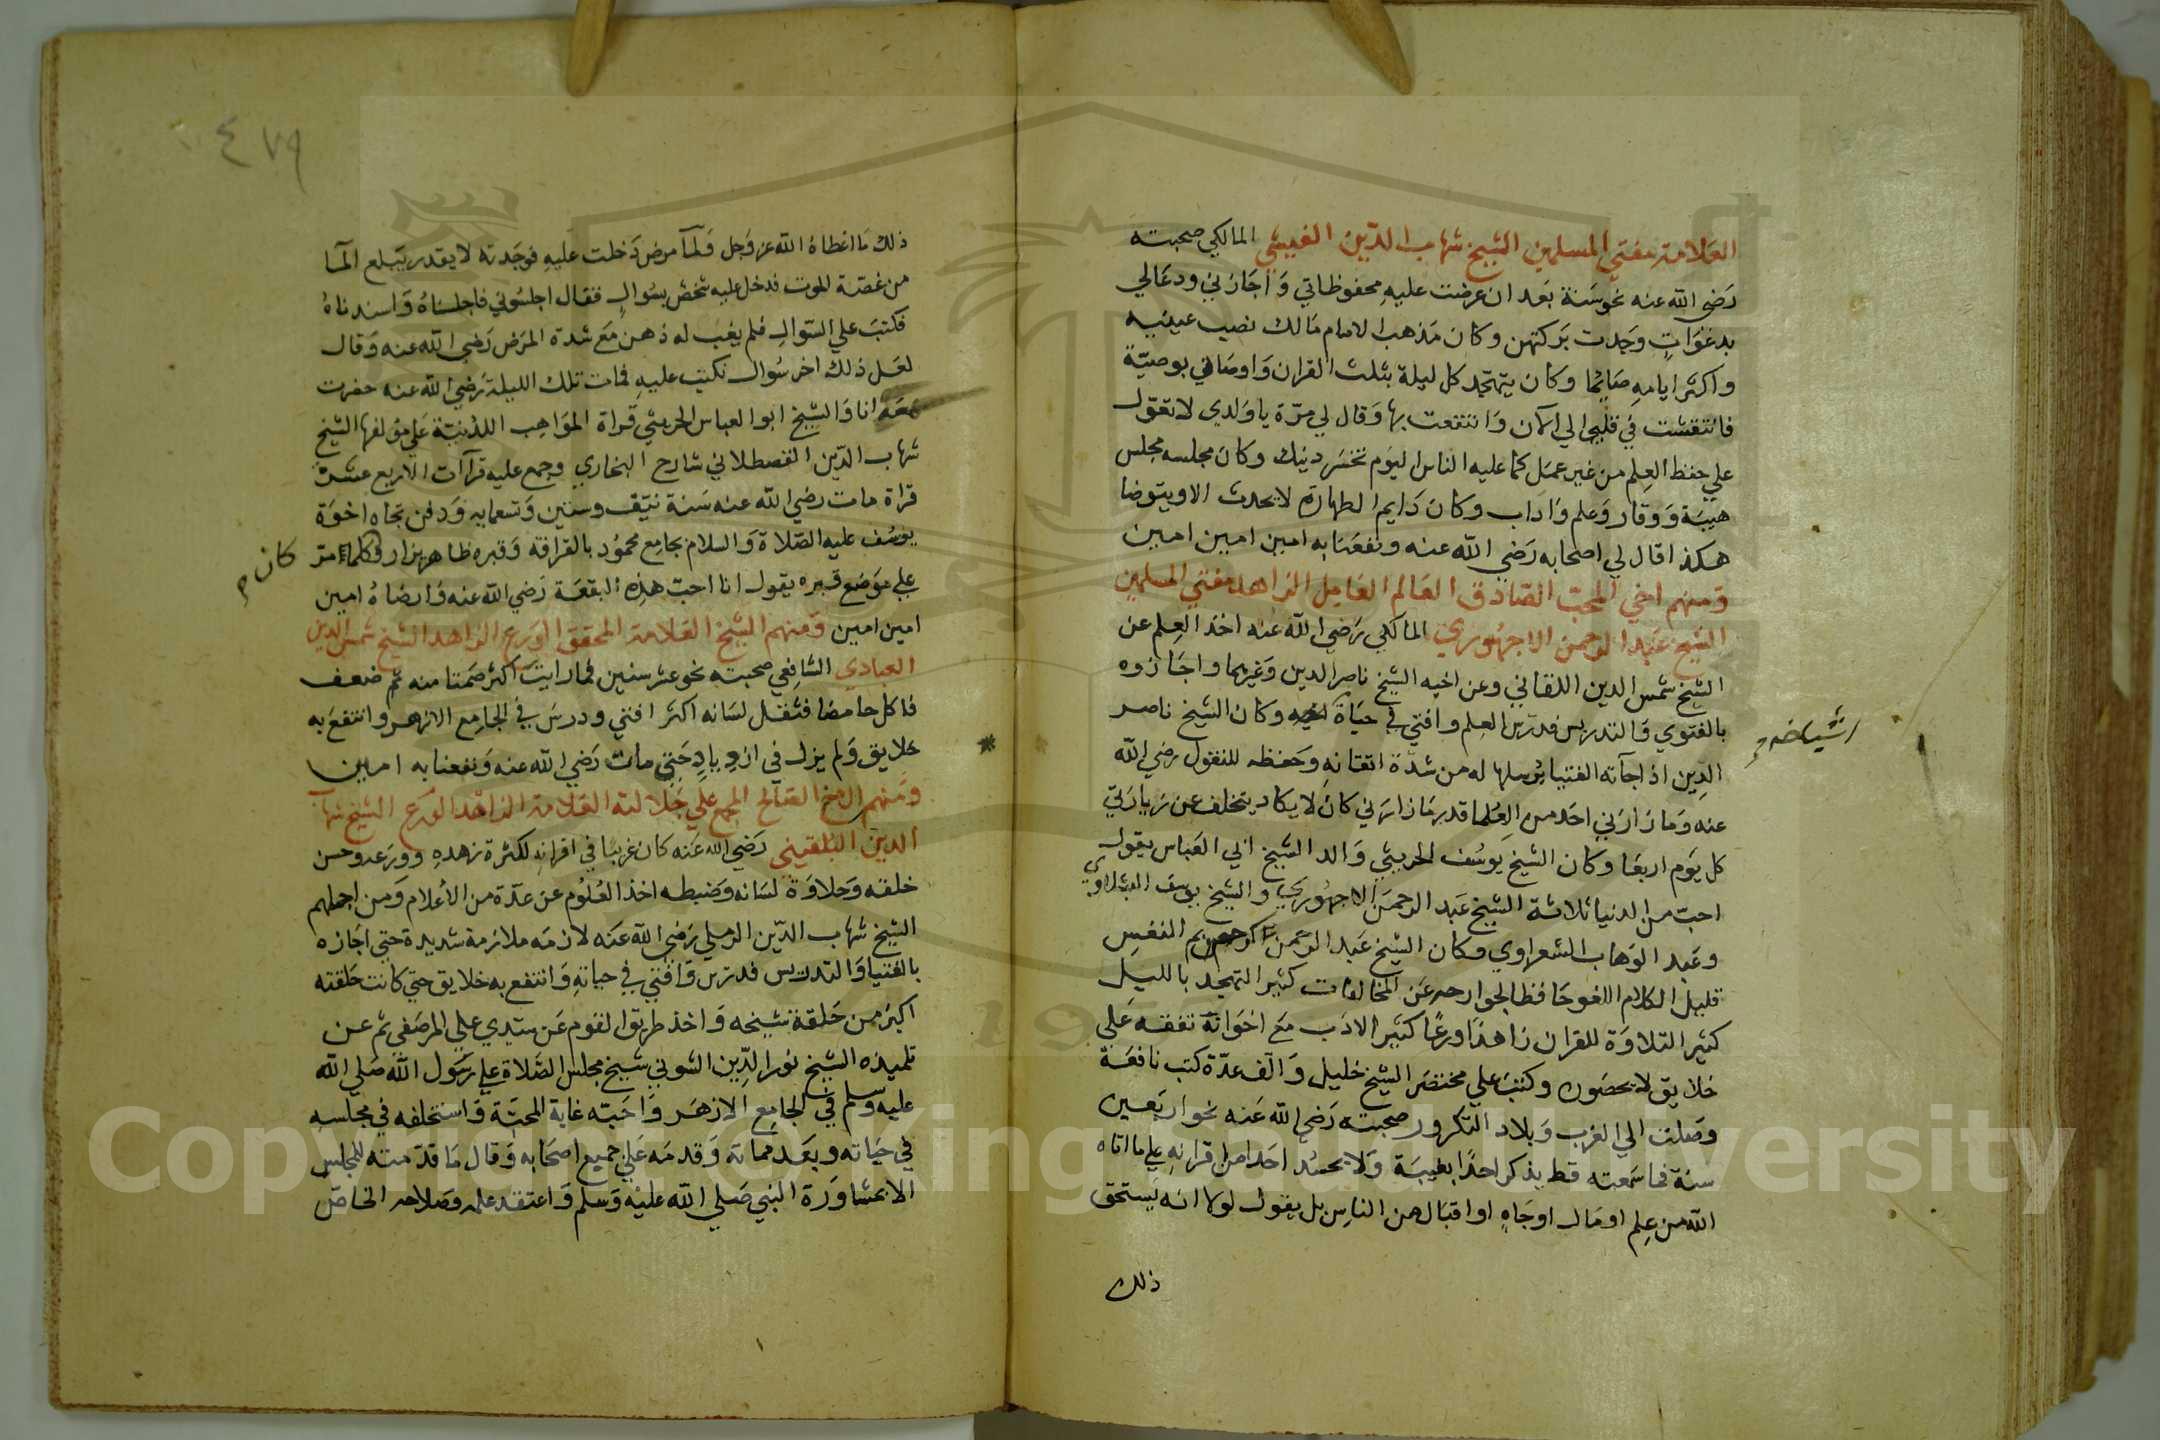 العلامة مفتي المسلمين الشيخ شهاب الدين الفيشي المالكي صحبته
رضي الله عنه نحو سنة بعد ان عرضت عليه محفوظاتي واجازني ودعا لي
بدعوات وجدت بركتهن وكان مذهب الامام مالك نصب عينيه
واكثر ايامه صائما وكان يتهجد كل ليلة بثلث القران واوصاني بوصية
فانتقشت في قلبي الي الان وانتفعت بها وقال لي مرة يا ولدي لا تعول
علي حفظ العلم من غير عمل كما عليه الناس اليوم تخسر دينك وكان مجلسه مجلس
هيبة ووقار وعلم واداب وكان دايم الطهارة لا يحدث الا ويتوضا
هكذا قال لي اصحابه رضي الله عنه ونفعنا به امين امين امين
ومنهم اخي المحب الصادق العالم العامل الزاهد مفتي المسلمين
الشيخ عبد الرحمن الاجهوري المالكي رضي الله عنه اخذ العلم عن
الشيخ شمس الدين اللقاني وعن اخيه الشيخ ناصر الدين وغيرهما واجازوه
بالفتوي والتدريس فدرس العلم وافتي في حياة وكان الشيخ ناصر
اشياخه
الدين اذا جآته الفتيا يرسلها له من شدة اتقانه وحفظه للنقول رضي الله
عنه وما زارني احد من العلما قدر ما زارني كان لا يكاد يتخلف عن زيارتي
كل يوم اربعا وكان الشيخ يوسف الحريثي والد الشيخ ابي العباس يقول
احب من الدنيا ثلاثة الشيخ عبد الرحمن الاجهوري والشيخ يوسف
وعبد الوهاب الشعراوي وكان الشيخ عبد الرحمن كريم النفس
قليل الكلام اللغو حافظا لجوارحه عن المخالفات كثير التهجد بالليل
كثير التلاوة للقران زاهدا ورعا كثير الادب مع اخوانه تفقه علي
خلايق لا يحصون وكتب علي مختصر الشيخ خليل والف عدة كتب نافعة
وصلت الي الغرب وبلاد التكرور صحبته رضي الله عنه نحو اربعين
سنة فما سمعته قط يذكر احدا بغيبة ولا يحسد احدا من اقرانه علي ما اتاه
الله من علم او مال او جاه او اقبال من الناس بل يقول لولا انه يستحق
ذلك
٤٧٩
ذلك ما اعطاه الله عز وجل ولما مرض دخلت عليه فوجدته لا يقدر يبلع الما
من غصة الموت فدخل عليه شخص بسوال فقال اجلسوني فاجلسناه واسندناه
فكتب علي السوال فلم يغب له ذهن مع شدة المرض رضي الله عنه وقال
لعل ذلك اخر سوال نكتب عليه فمات تلك الليلة رضي الله عنه حضرت
معه انا والشيخ ابو العباس الحريثي قراة المواهب اللدنية علي مولفها الشيخ
شهاب الدين القسطلاني شارح البخاري وجمع عليه قرآات الاربع عشرة
قراة مات رضي الله عنه سنة نيف وستين وتسعمايه ودفن تجاه اخوة
يوسف عليه الصلاة والسلام بجامع محمود بالقرافة وقبره ظاهر يزار وكلما مر
كان
علي موضع قبره يقول انا احب هذه البقعة رضي الله عنه وارضاه امين
امين امين ومنهم الشيخ العلامة المحقق الورع الزاهد الشيخ شمس الدين
العبادي الشافعي صحبته نحو عشر سنين فما رايت اكثر صمتا منه ثم ضعف
فاكل حامضا فثقل لسانه اكثر افتي ودرس في الجامع الازهر وانتفع به
خلايق ولم يزل في ازدياد حتي مات رضي الله عنه ونفعنا به امين
ومنهم الاخ الصالح المجمع علي جلالته العلامة الزاهد الورع الشيخ شهاب
الدين البلقيني رضي الله عنه كان غريبا في اقرانه لكثرة زهده وورعه وحسن
خلقه وحلاوة لسانه وضبطه اخذ العلوم عن عدة من الاعلام ومن اجلهم
الشيخ شهاب الدين الرملي رضي الله عنه لازمه ملازمة شديدة حتي اجازه
بالفتيا والتدريس فدرس وافتي في حياته وانتفع به خلايق حتي كانت حلقته
اكبر من حلقة شيخه واخذ طريق القوم عن سيدي علي المرصفي ثم عن
تلميذه الشيخ نور الدين الشوني شيخ مجلس الصلاة علي رسول الله صلي الله
عليه وسلم في الجامع الازهر واحبه غاية المحبة واستخلفه في مجلسه
في حياته وبعد مماته وقدمه علي جميع اصحابه وقال ما قدمته للمجلس
الا بمشاورة النبي صلي الله عليه وسلم واعتقد علمه وصلاحه الخاص
Copyright © King Saud University